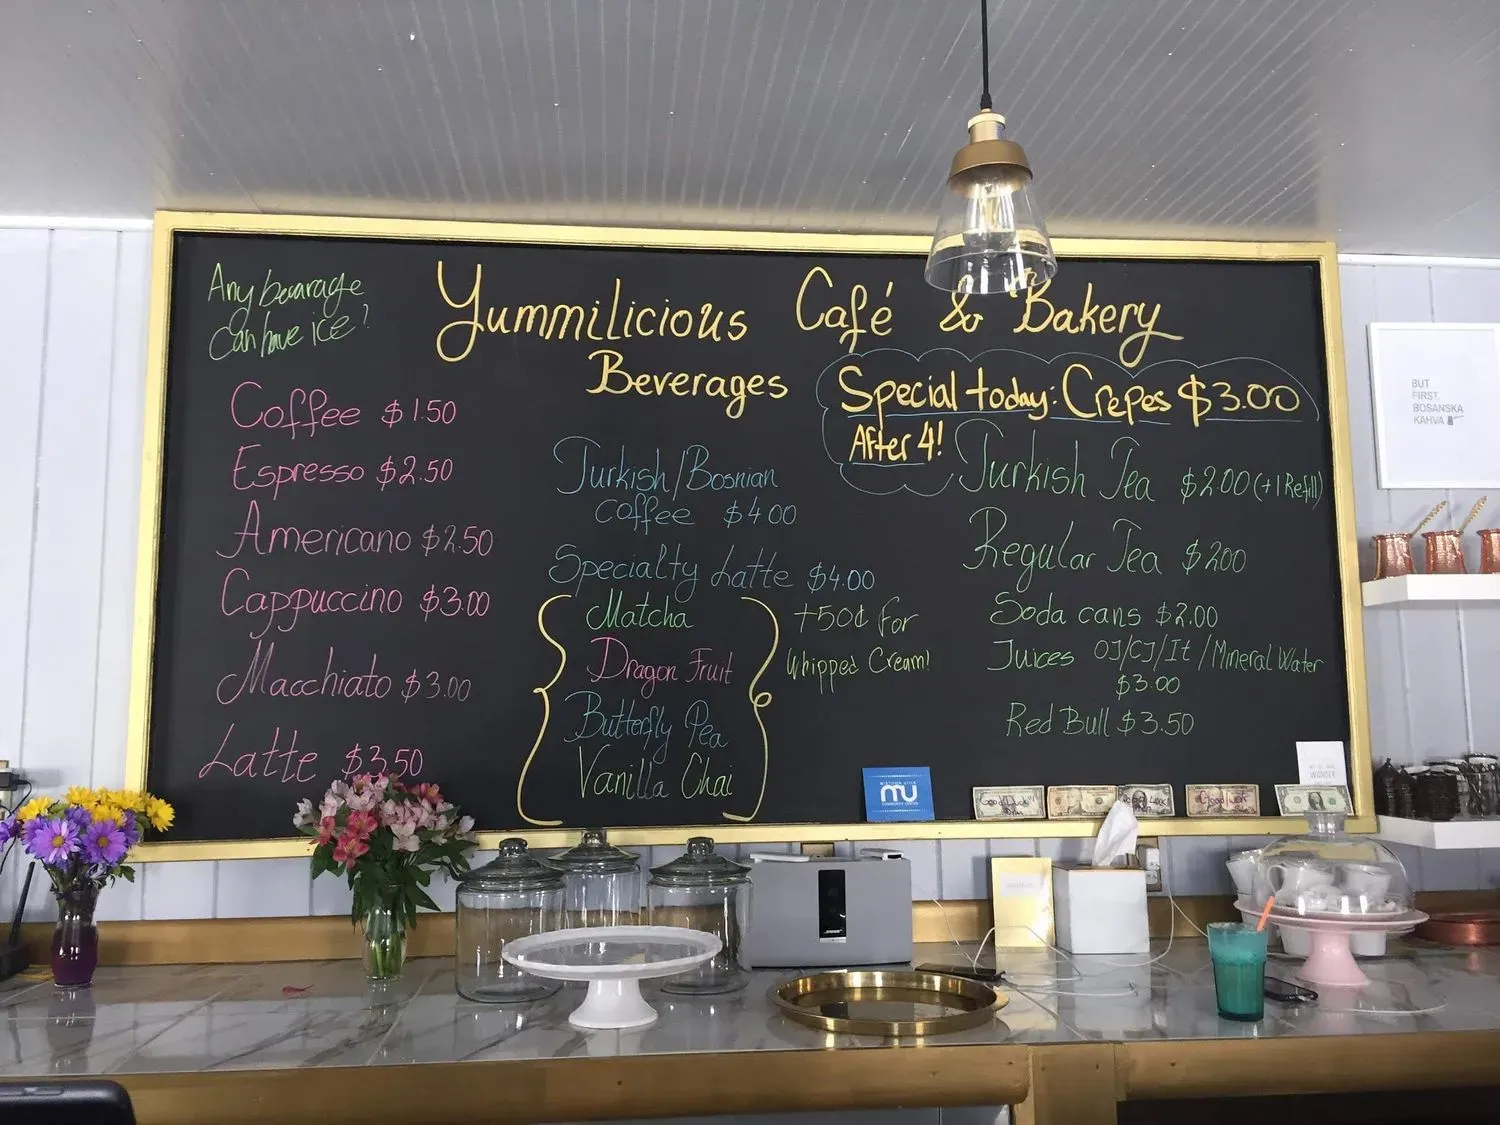 Any bevarage
can have ice!
Yummilicious Café & Bakery
Beverages
Special today: Crepes $3.00
After 4!
Coffee $1.50
Espresso $2.50
Americano $2.50
Cappuccino $3.00
Macchiato $3.00
Latte $3.50
Turkish/Bosnian
coffee $4.00
Specialty Latte $4.00
Matcha
Dragon Fruit
Butterfly Pea
Vanilla Chai
+50¢ for
whipped Cream!
Turkish Tea $2.00 (+1 Refill)
Regular Tea $2.00
Soda cans $2.00
Juices OJ/CJ/It/Mineral Water
$3.00
Red Bull $3.50
BUT
FIRST,
BOSANSKA
KAHVA
MIDTOWN UTICA
MU
COMMUNITY CENTER
Good luck
WONDER
BOSE